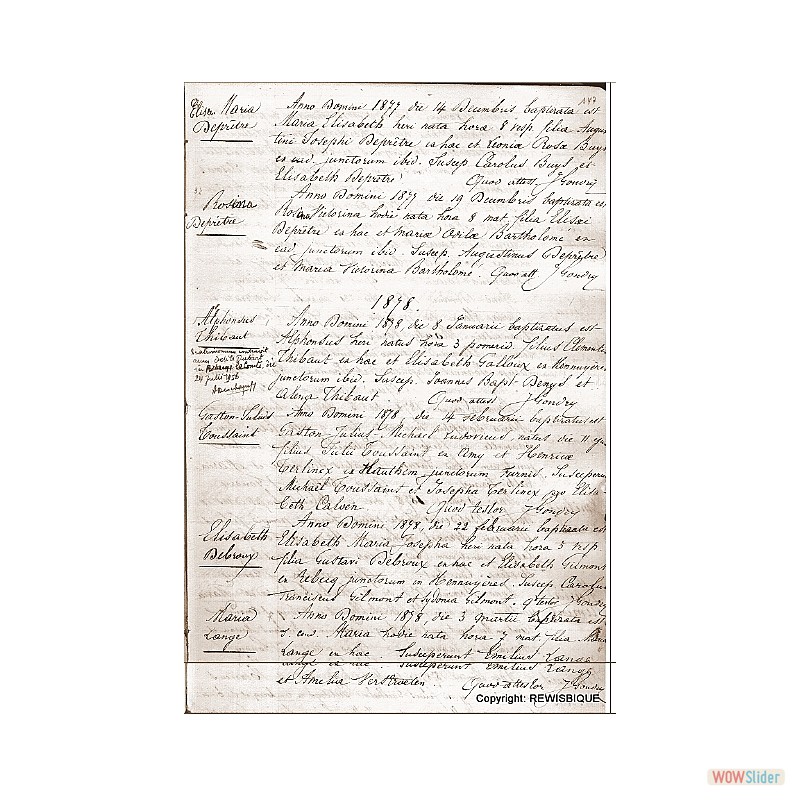 147
Elise Maria
Deprêtre
Anno Domini 1877 die 14 Decembris baptizata est
Maria Elisabeth heri nata hora 8 vesp. filia Augus
tini Josephi Deprêtre ex hac et Leonia Rosa Buys
ex ead. junctorum ibid. Suscep. Carolus Buys et
Elisabeth Deprêtre Quod attest. J Gondry
Rosina
Deprêtre
Anno Domini 1877 die 19 Decembris baptizata est
Rosina Victorina hodie nata hora 8 mat. filia Elisæi
Deprêtre ex hac et Mariæ Odilæ Bartholomé ex
ead. junctorum ibid. Suscep. Augustinus Deprêtre
et Maria Victorina Bartholomé. Quod att J Gondry
1878.
Alphonsus
Thibaut
24 julii 1956
Anno Domini 1878, die 8 Januarii baptizatus est
Alphonsus heri natus hora 3 pomerid. filius Clementis
Thibaut ex hac et Elisabeth Galloux ex Hennuyères
junctorum ibid. Suscep. Joannes Bapt Denys et
Alena Thibaut. Quod attest J Gondry
Gaston-Julius
Toussaint
Anno Domini 1878 die 14 februarii baptizatus est
Gaston Julius Michael Ludovicus, natus die 11
filius Julii Toussaint ex Amy et Henricæ
Terlinex ex Hauthem junctorum Furnes. Susceperunt
Michaël Toussaint et Josepha Terlinex pro Elisa
beth Calven Quod testor J Gondry
Elisabeth
Debroux
Anno Domini 1878, die 22 februarii baptizata est
Elisabeth Maria Josepha heri nata hora 3 vesp
filia Gustavi Debroux ex hac et Elisabeth Gilmont
ex Rebecq junctorum in Hennuyères. Suscep. Carolus
Franciscus Gilmont et Sydonia Gilmont. q testor J Gondry
Maria
Lange
Anno Domini 1878, die 3 Martii baptizata est
Maria hodie nata hora 7 mat. filia
Lange ex hac Susceperunt Emilius Lange
Lange ex hac. Susceperunt Emilius Lange
et Amelia Verstraeten Quod attestor J Gondry
Copyright: REWISBIQUE
WOWSlider